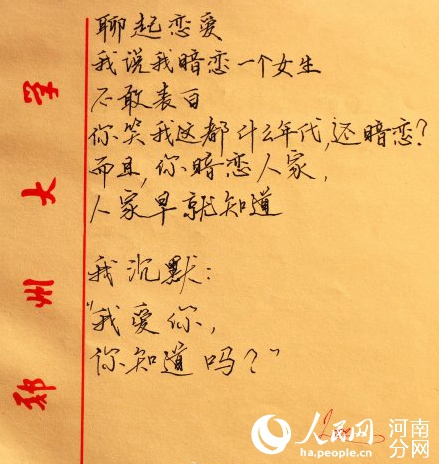 聊起恋爱
我说我暗恋一个女生
不敢表白
你笑我这都什么年代,还暗恋?
而且,你暗恋人家,
人家早就知道
我沉默:
"我爱你,
你知道吗?"
郑州大学
人民网 河南分网
ha.people.cn